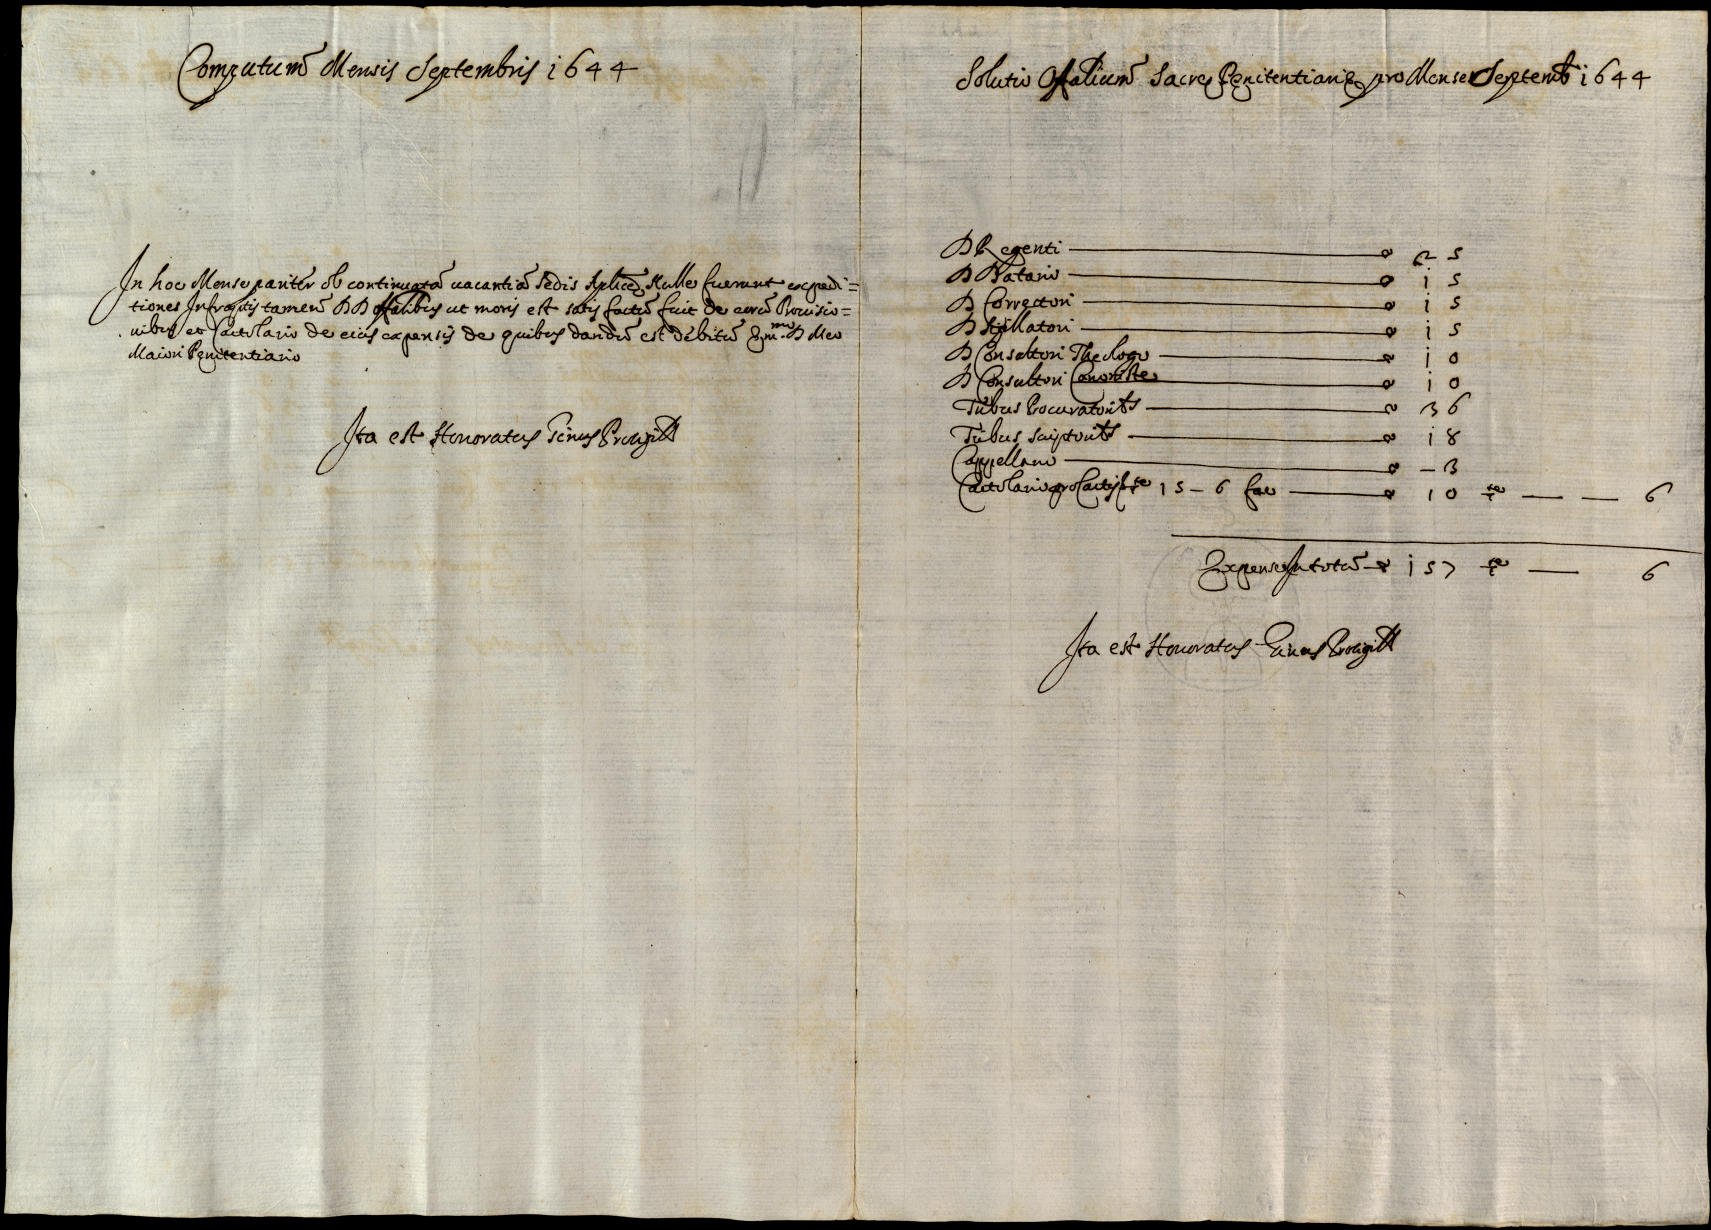 Computum Mensis Septembris 1644
In hoc Mense pariter ob continuatã uacantiã Sedis Aplicę Nullę fuerunt expedi=
tiones Infraptis tamen D D offalibus ut moris est satis factũ fuit de eorũ Prouisio=
nibus et Cartolario de eius expensis de quibus dandũ est debitũ Emmo D Meo
Maiori Pęnitentiario
Ita est Honoratus
Solutio Offalium Sacrę Pęnitentiarię pro Mense Septemb 1644
D Regenti 25
D Datario 15
D Correctori 15
D Sigillatori 15
D Consultori Theologo 10
D Consultori Canonistę 10
Tribus Procuratoribs 36
Tribus Scriptoribs 18
Cappellano – 3
Cartolario pro 15 – 6 10 — — 6
Expensę In totũ 157 — 6
Ita est Honoratus